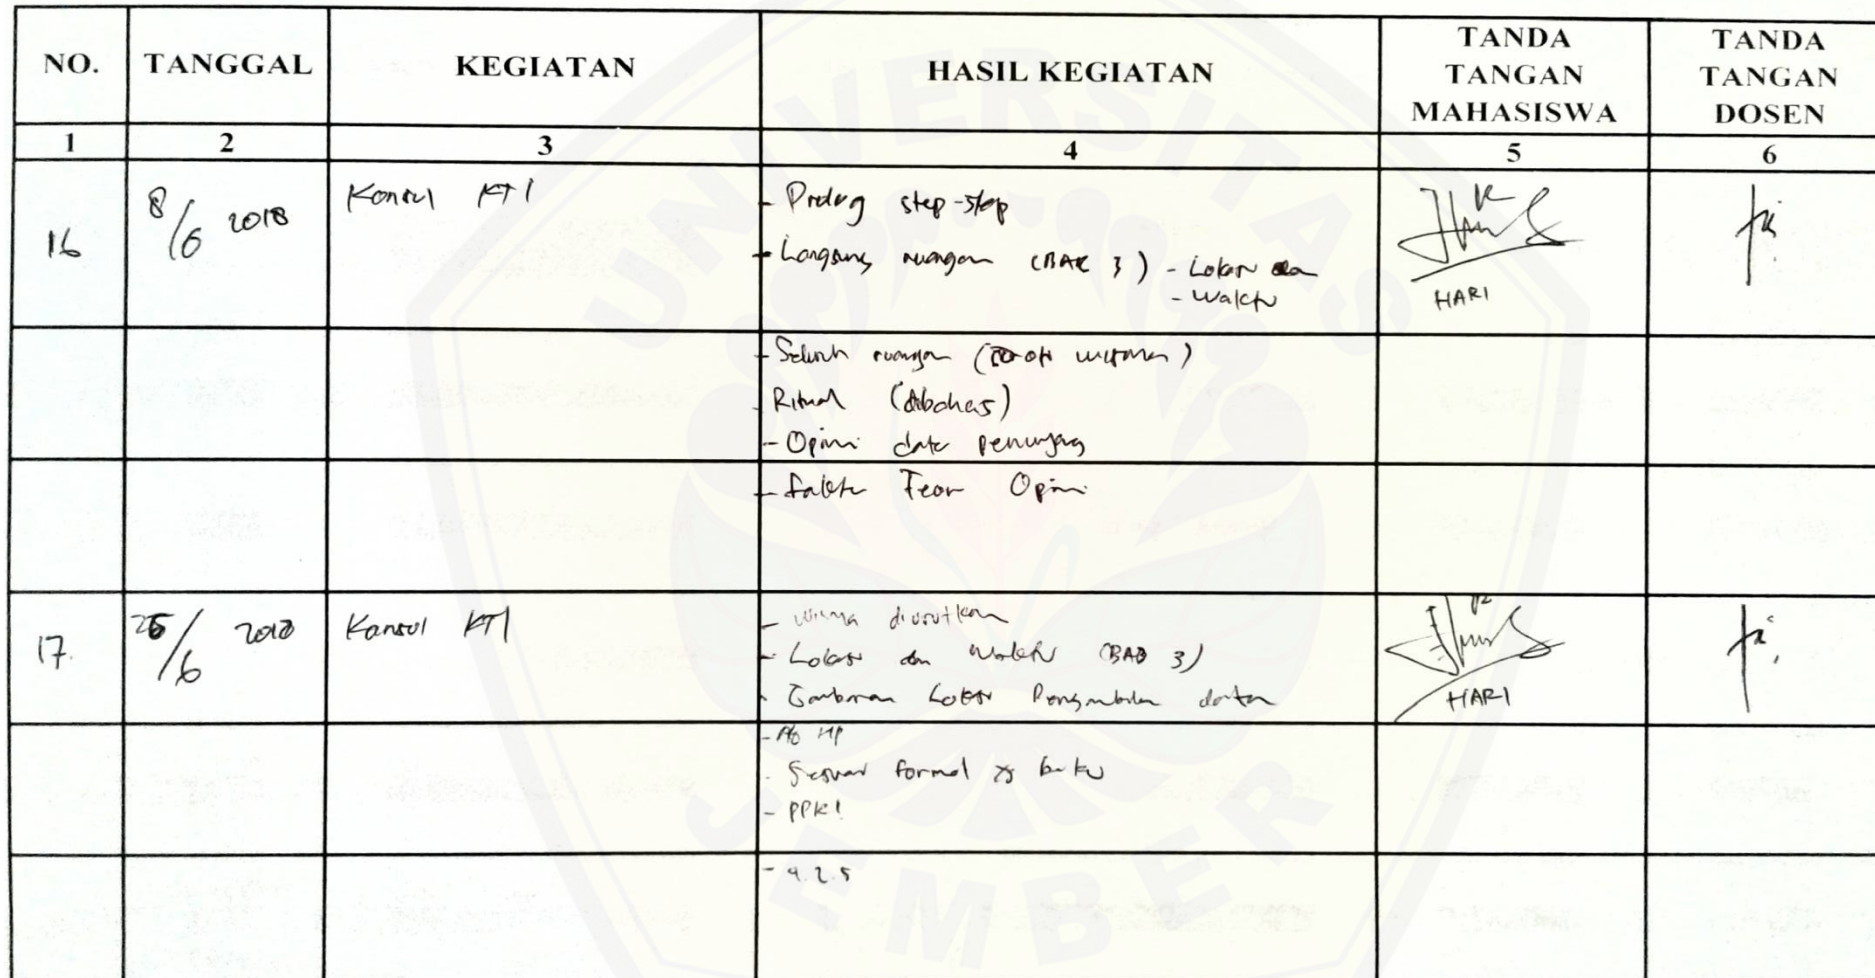 NO. TANGGAL KEGIATAN HASIL KEGIATAN TANDA TANGAN MAHASISWA TANDA TANGAN DOSEN
1 2 3 4 5 6
16 8/6 2018 Konsul KTI - Prolog step-step
- Langsung ruangan (BAB 3) - Lokasi dan
- Waktu
HARI
- Seluruh ruangan
- Ritual (dibahas)
- Opini data penunjang
- Fakta Teori Opini
17. 25/6 2018 Konsul KTI - diurutkan
- Lokasi dan Waktu (BAB 3)
- Gambaran Lokasi Pengambilan data
HARI
- No HP
- Sesuai format yg baku
- PPKI
- 4.2.5
UNIVERSITAS
JEMBER